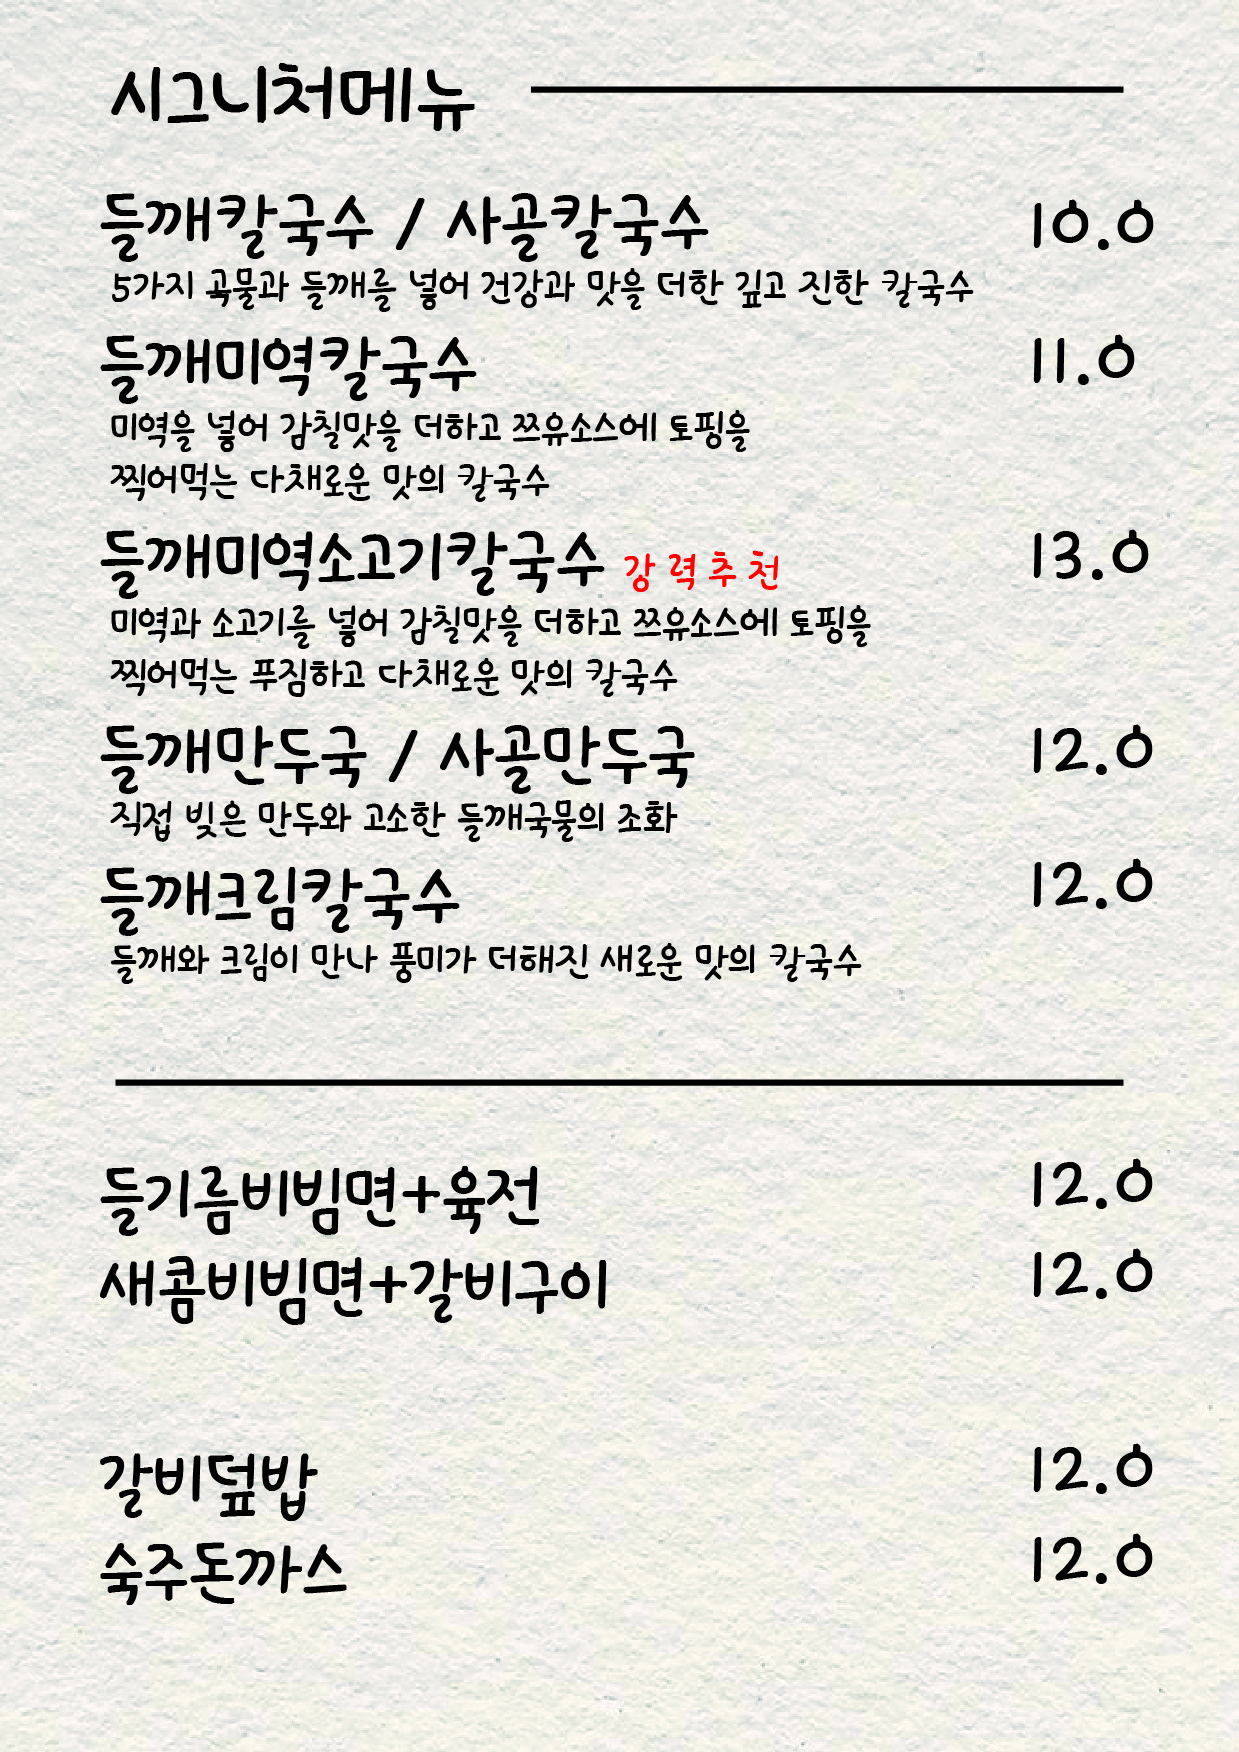 시그니처메뉴
들깨칼국수 / 사골칼국수 10.0
5가지 곡물과 들깨를 넣어 건강과 맛을 더한 깊고 진한 칼국수
들깨미역칼국수 11.0
미역을 넣어 감칠맛을 더하고 쯔유소스에 토핑을
찍어먹는 다채로운 맛의 칼국수
들깨미역소고기칼국수 강력추천 13.0
미역과 소고기를 넣어 감칠맛을 더하고 쯔유소스에 토핑을
찍어먹는 푸짐하고 다채로운 맛의 칼국수
들깨만두국 / 사골만두국 12.0
직접 빚은 만두와 고소한 들깨국물의 조화
들깨크림칼국수 12.0
들깨와 크림이 만나 풍미가 더해진 새로운 맛의 칼국수
들기름비빔면+육전 12.0
새콤비빔면+갈비구이 12.0
갈비덮밥 12.0
숙주돈까스 12.0